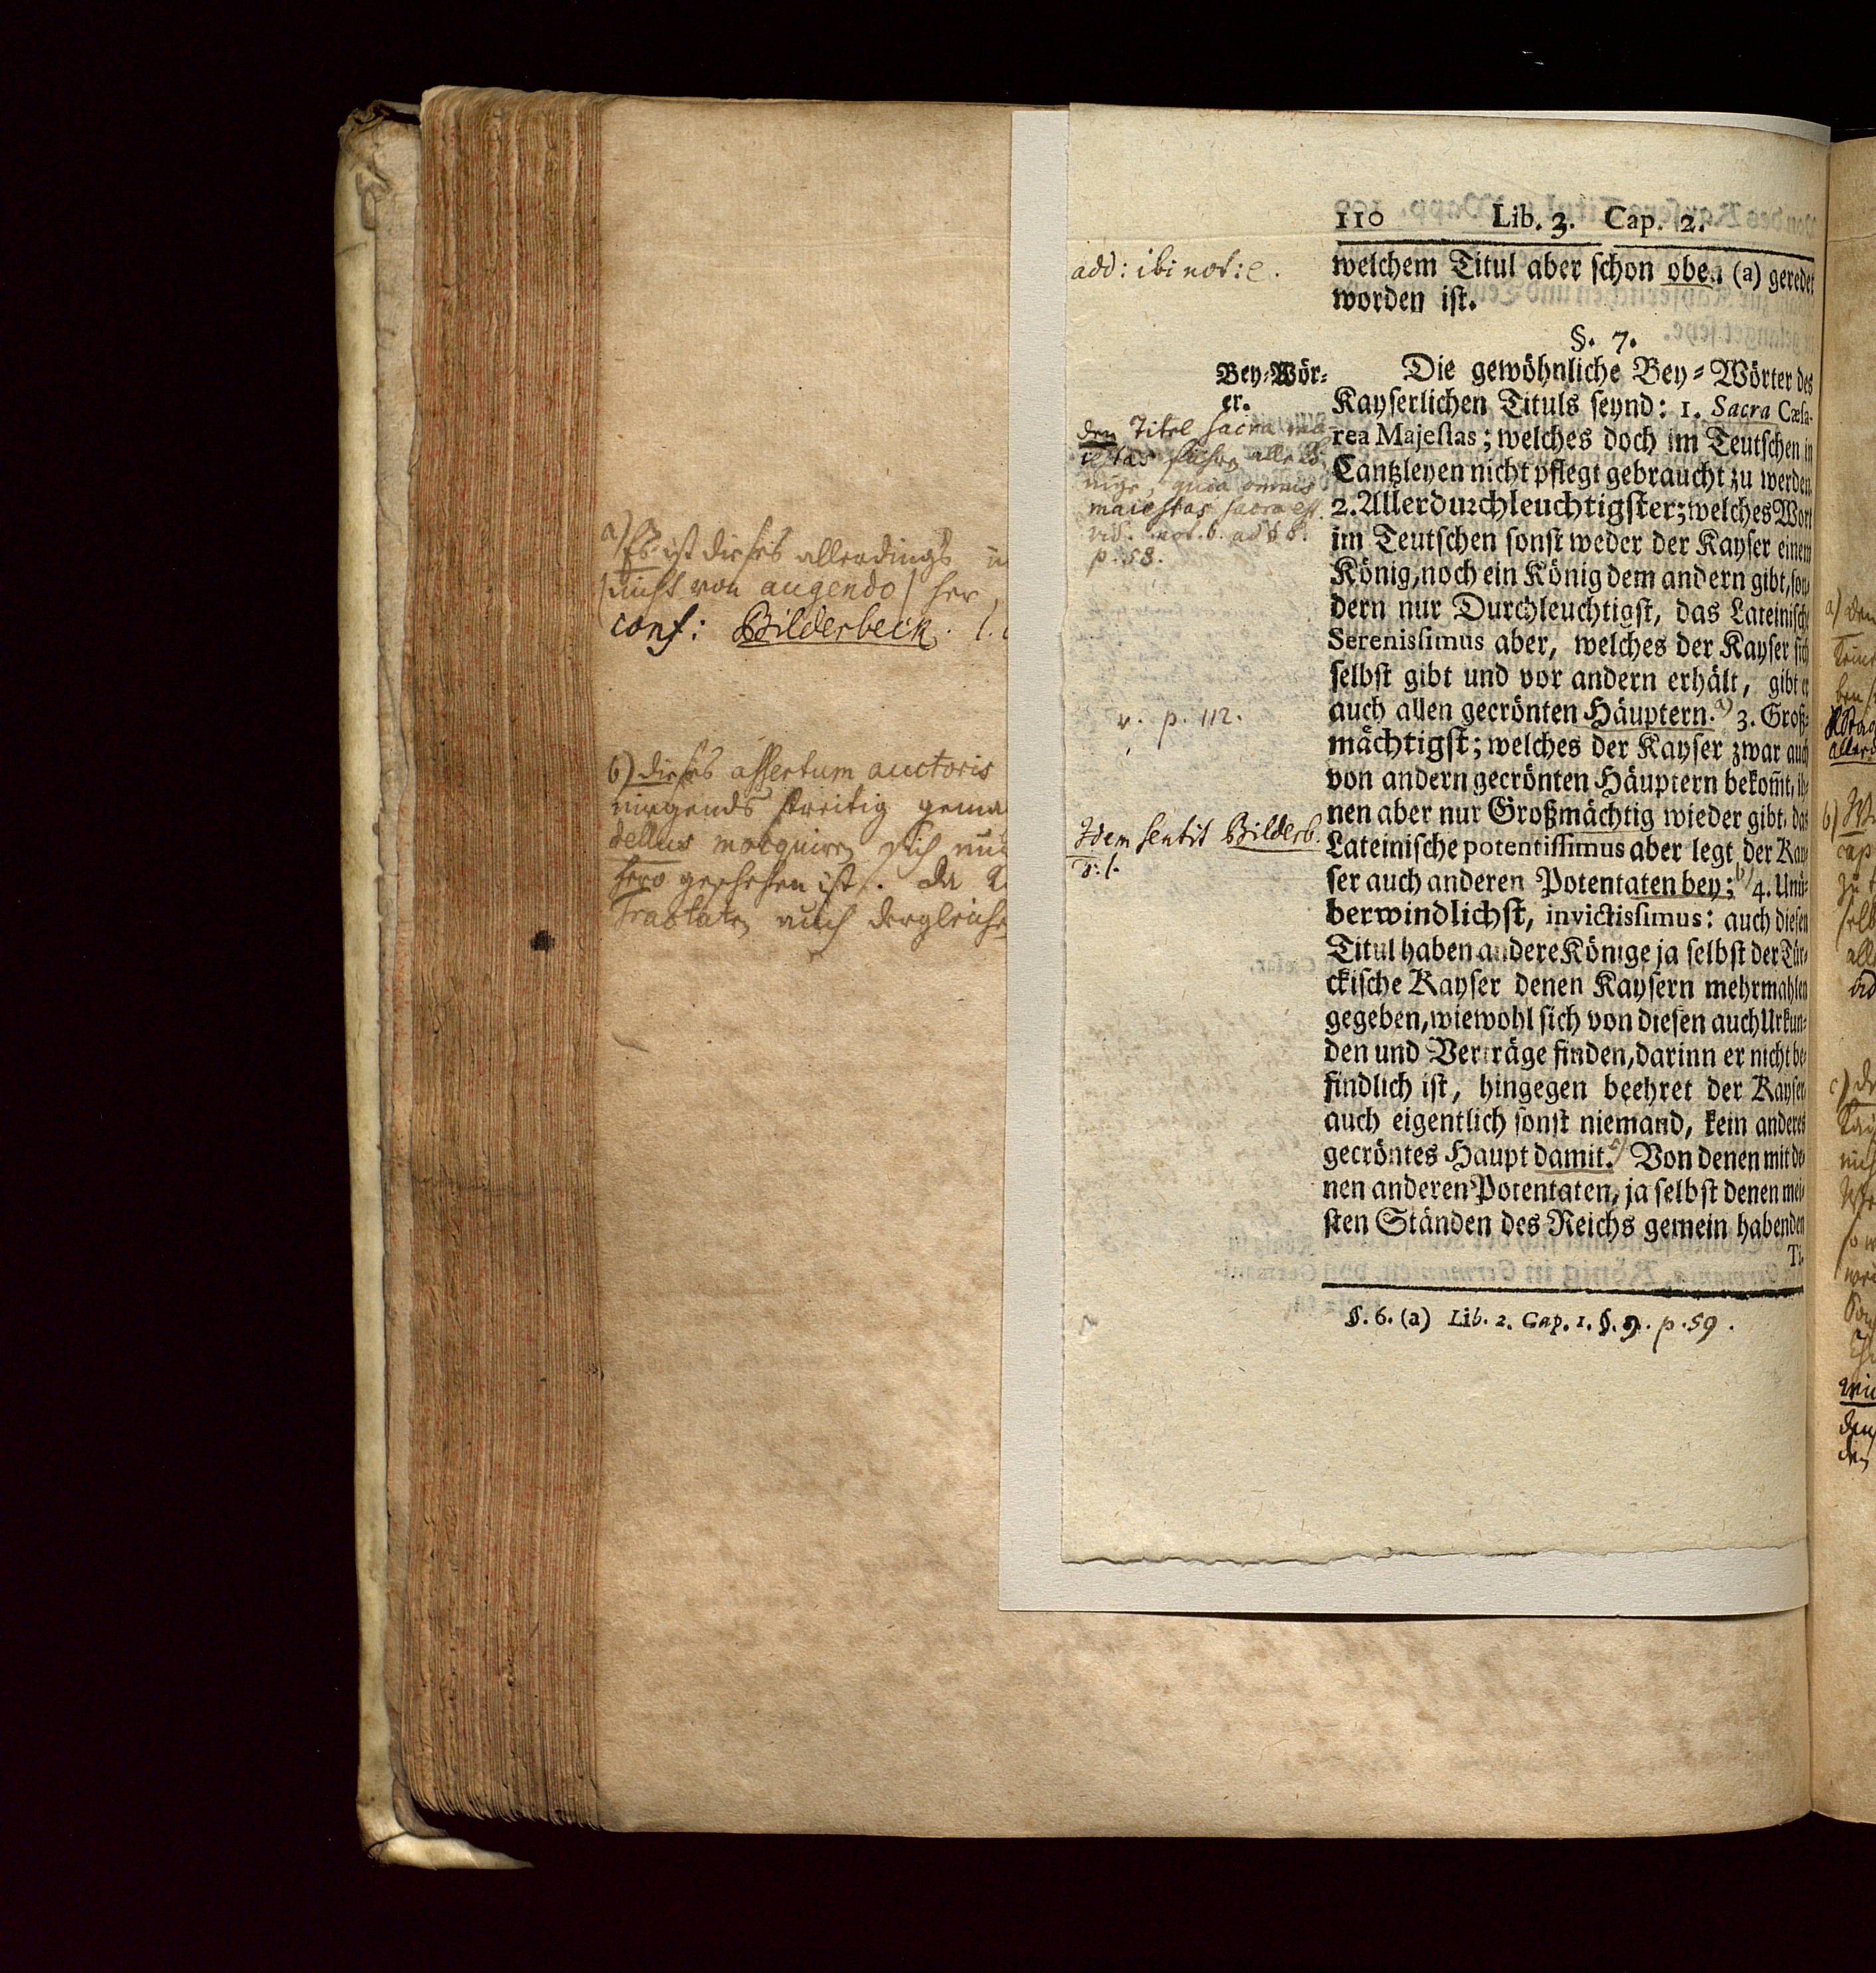 110 Lib. 3. Cap. 2.
welchem Titul aber schon oben (a) geredet
worden ist.
§. 7.
Die gewöhnliche Bey-Wörter des
Kayserlichen Tituls seynd: 1. Sacra Cæsa-
rea Majestas; welches doch im Teutschen in
Cantzleyen nicht pflegt gebraucht zu werden.
2. Allerdurchleuchtigster; welches Wort
im Teutschen sonst weder der Kayser einem
König, noch ein König dem andern gibt, son-
dern nur Durchleuchtigst, das Lateinische
Serenissimus aber, welches der Kayser sich
selbst gibt und vor andern erhält, gibt er
auch allen gecrönten Häuptern. a) 3. Groß-
mächtigst; welches der Kayser zwar auch
von andern gecrönten Häuptern bekom̃t, ih-
nen aber nur Großmächtig wieder gibt, das
Lateinische potentissimus aber legt der Kay-
ser auch anderen Potentaten bey; b) 4. Unü-
berwindlichst, invictissimus: auch diesen
Titul haben andere Könige ja selbst der Tür-
ckische Kayser denen Kaysern mehrmahlen
gegeben, wiewohl sich von diesen auch Urkun-
den und Verträge finden, darinn er nicht be-
findlich ist, hingegen beehret der Kayser
auch eigentlich sonst niemand, kein anderes
gecröntes Haupt damit. c) Von denen mit de-
nen anderen Potentaten, ja selbst denen mei-
sten Ständen des Reichs gemein habenden
Ti-
§. 6. (a) Lib. 2. Cap. 1. §. 9. p. 59.
add: ibi not: e.
Bey-Wör-
er.
den Titel sacra ma-
iestas führen alle Kö-
nige, quia omnis
maiestas sacra est.
vid. not. b. ad § 8.
p. 58.
v. p. 112.
Idem sentit Bilderb.
a) Es ist dieses allerdings
(nicht von augendo) her,
conf: Bilderbeck. l.
b) dieses assertum auctoris
nirgends streitig gema
dellus moquiren sich
hero geschehen ist. da
Tractaten auch dergleichen